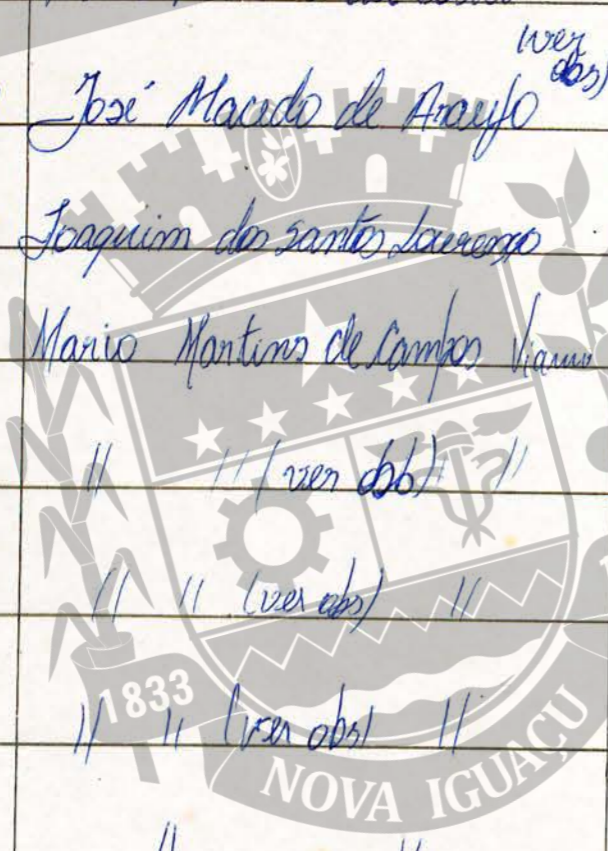 (ver
obs)
José Macedo de Araujo
Joaquim dos Santos Lourenço
Mario Martins de Campos Vianna
" " (ver obs) "
" " (ver obs) "
1833
" " (ver obs) "
NOVA IGUAÇU
" "